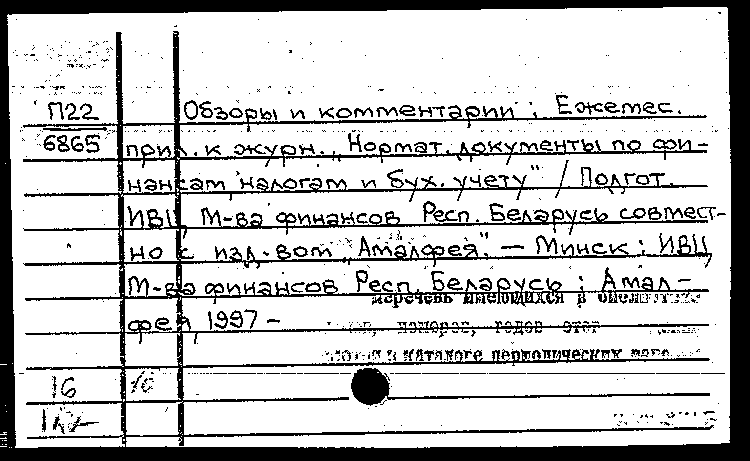 П22 Обзоры и комментарии : Ежемес.
6865 прил. к журн. „Нормат. документы по фи-
нансам, налогам и бух. учету" / Подгот.
ИВЦ М-ва финансов Респ. Беларусь совмест-
но с изд-вом „Амалфея". — Минск : ИВЦ
М-ва финансов Респ. Беларусь : Амал-
перечень имеющихся в
фея, 1997 -
номеров, годов этог
в каталоге периодических
16 16